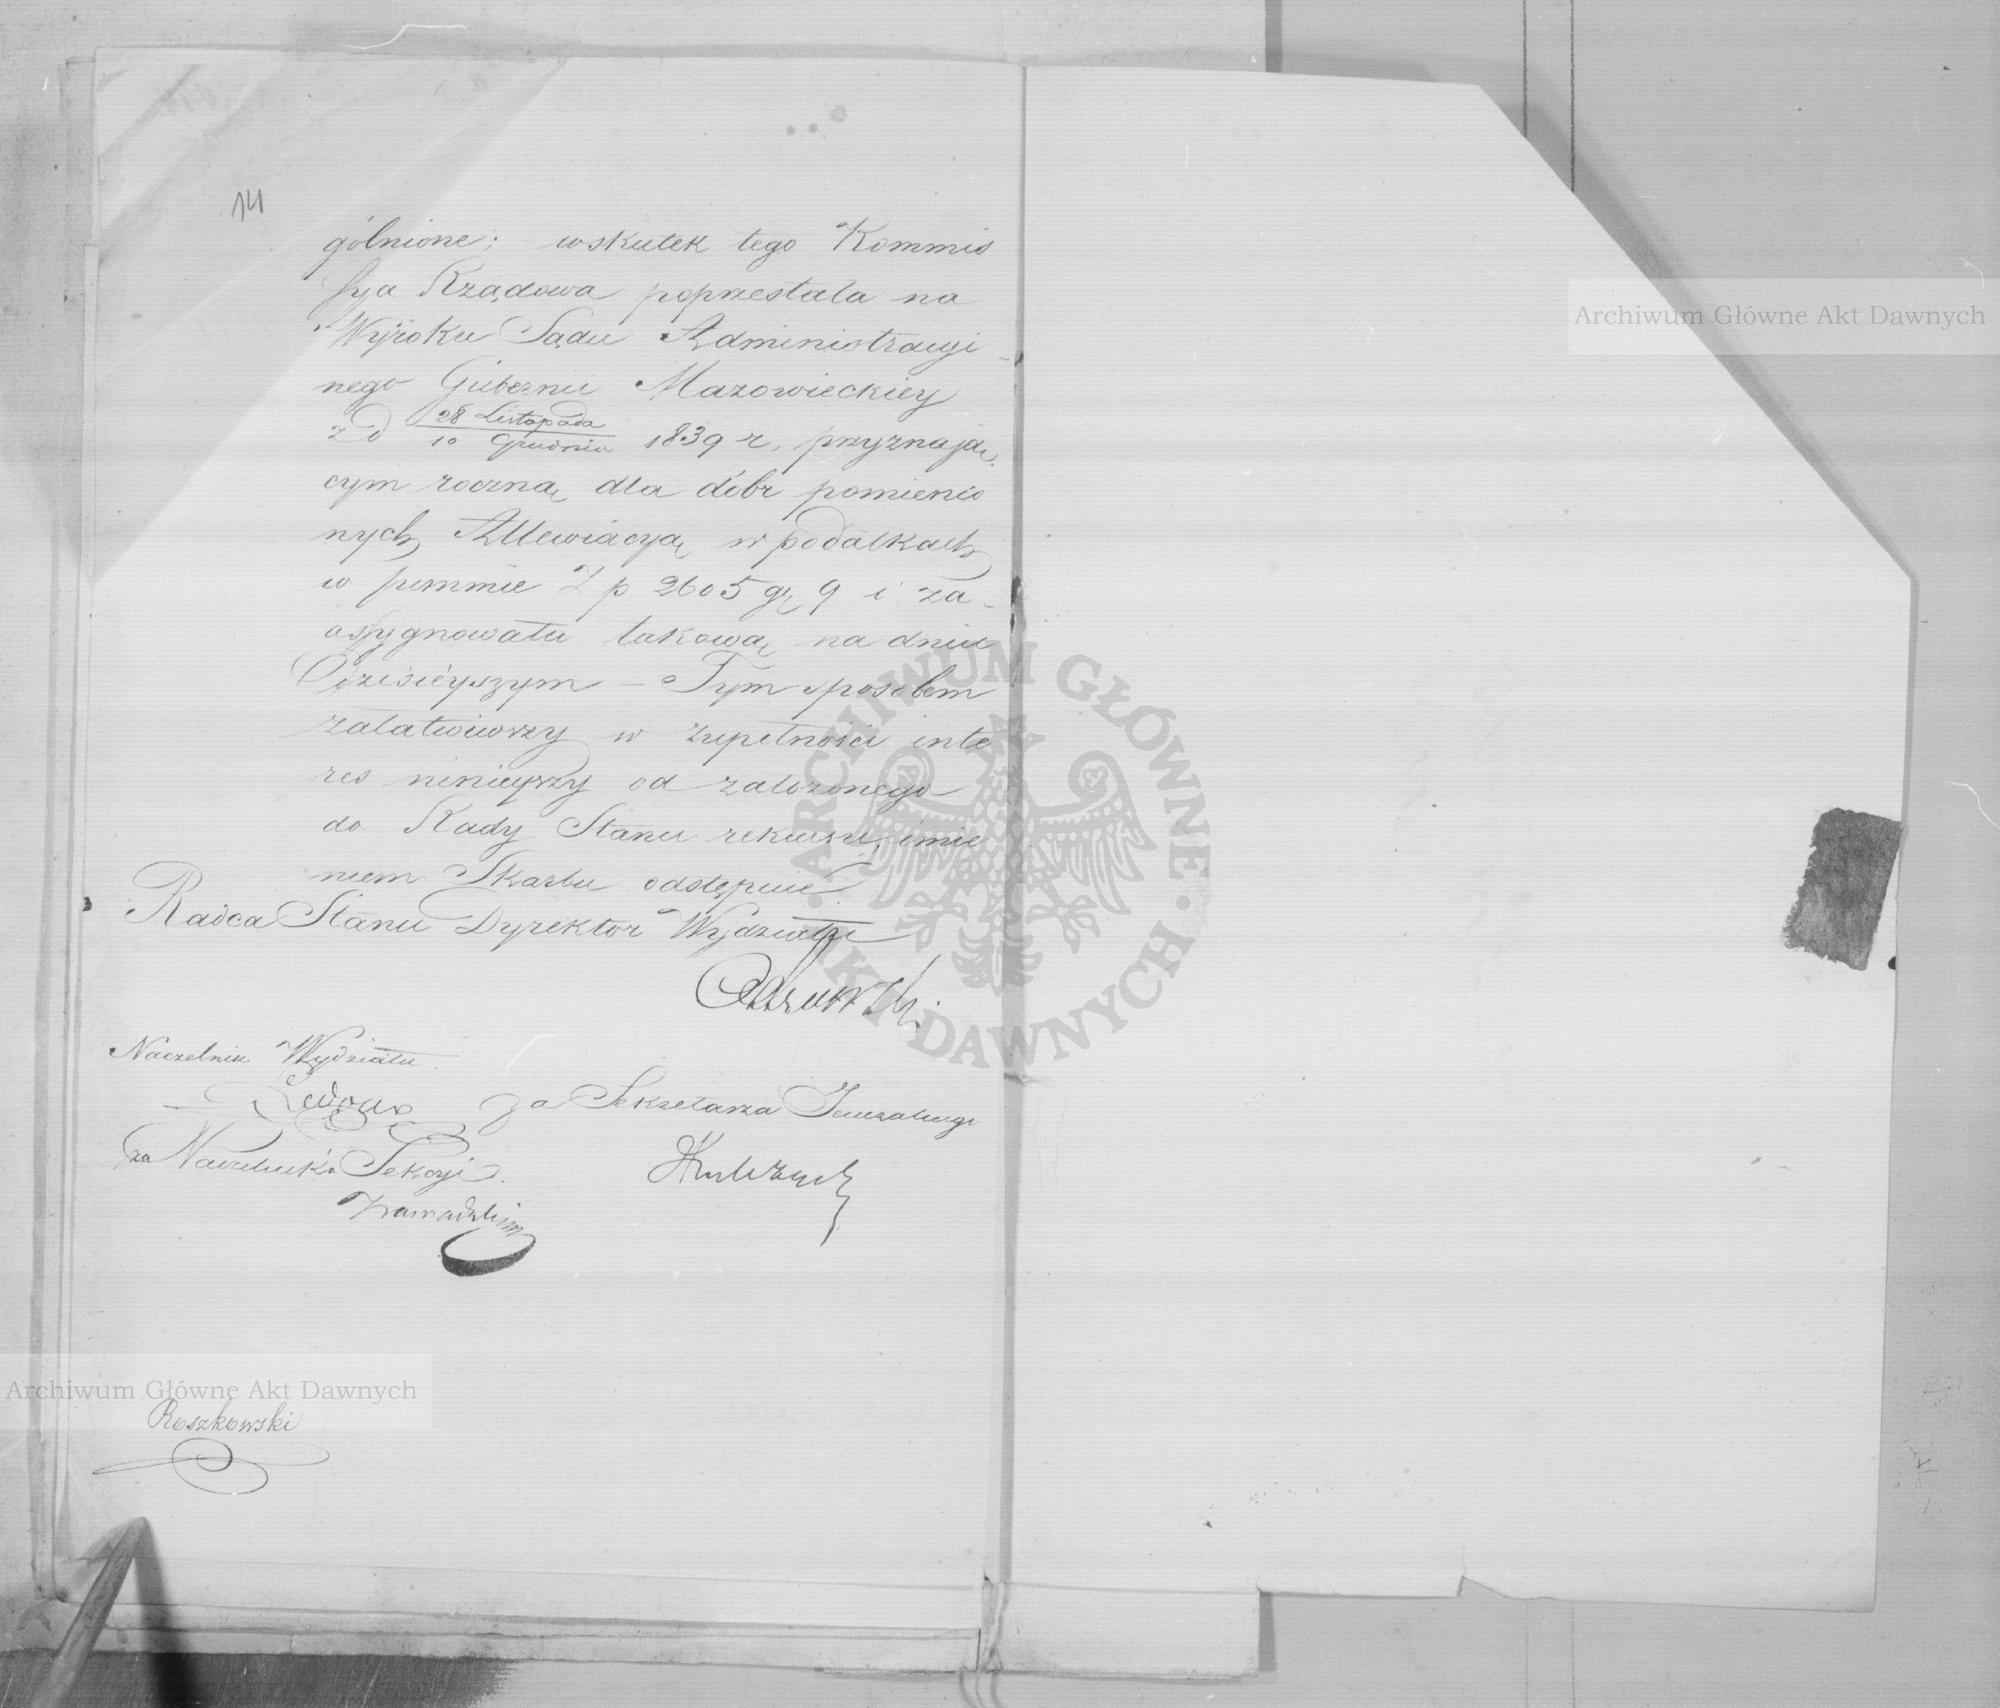 14
gólnione; wskutek tego Kommis
syia Rządowa poprzestała na
Wyroku Sądu Administracyi
nego Gubernii Mazowieckiey
z d 28 Listopada / 10 Grudnia 1839 r. przyznają
cym roczną dla dóbr pomienio
nych Allewiacyą w podatkach
w summie Zp 2605 gr 9 i za-
assygnowała takową na dniu
Dzisieyszym — Tym sposobem
załatwiwszy w zupełności inte
res ninieyszy od założonego
do Rady Stanu rekursu, imie
niem Skarbu odstępuie
Radca Stanu Dyrektor Wydziału
Naczelnik Wydziału
Za Sekretarza Jeneralnego
za Naczelnika Sekcyi
Roszkowski
Archiwum Główne Akt Dawnych
Archiwum Główne Akt Dawnych
ARCHIWUM GŁÓWNE AKT DAWNYCH